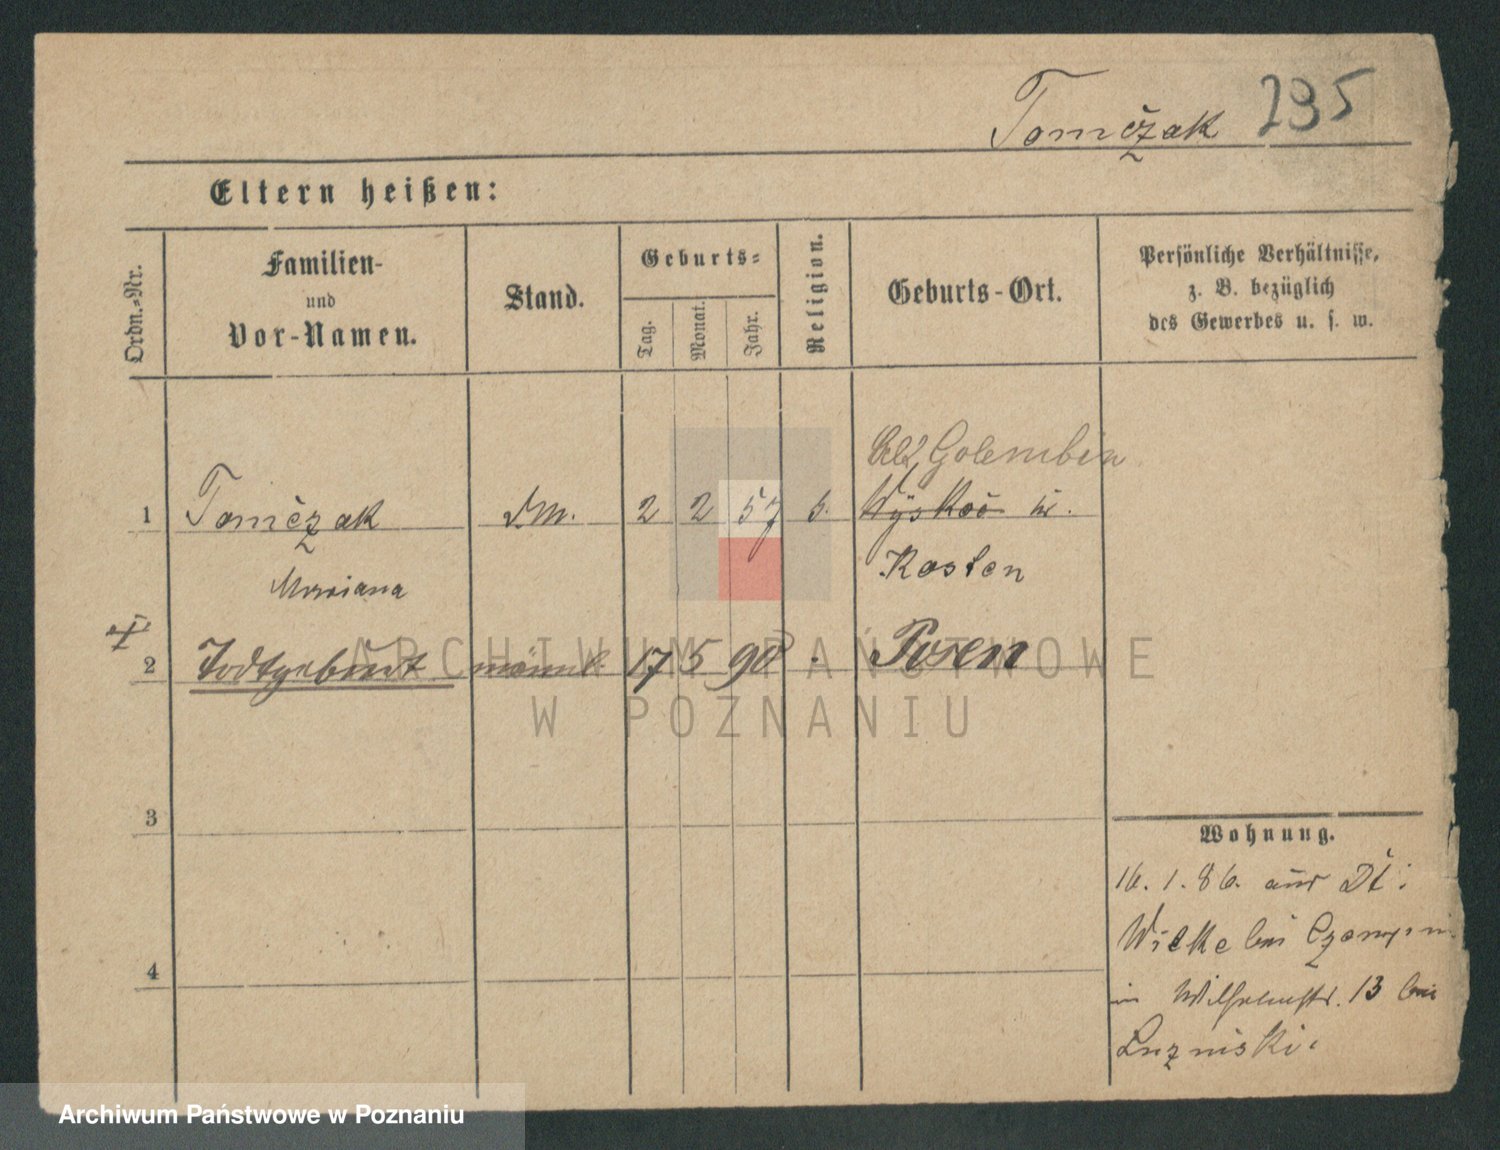 Tomczak 295
Eltern heißen:
Ordn.-Nr.
Familien-
und
Vor-Namen.
Stand.
Geburts-
Tag.
Monat.
Jahr.
Religion.
Geburts-Ort.
Persönliche Verhältnisse,
z. B. bezüglich
des Gewerbes u. s. w.
Golembin
1 Tomczak d.M. 2 2 57 Wyskoc
Kosten
Mariana
2 Todtgeburt männl. 17 5 90 Posen
3
4
Wohnung.
16. 1. 86. aus Dt:
Wilke bei Czempin
in Wilhelmstr. 13 bei
Luzniski.
ARCHIWUM PAŃSTWOWE
W POZNANIU
Archiwum Państwowe w Poznaniu